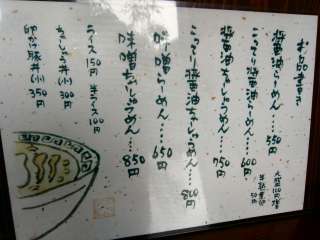 お品書き
醤油らーめん……550円
こってり醤油らーめん……600円
醤油ちゃしゅうめん……750円
こってり醤油ちゃしゅうめん……800円
味噌らーめん……650円
味噌ちゃしゅうめん……850円
大盛110円増
半熟煮卵50円
ライス150円 半ライス100円
ちゃしゅう丼(小)300円
卵かけ豚丼(小)350円